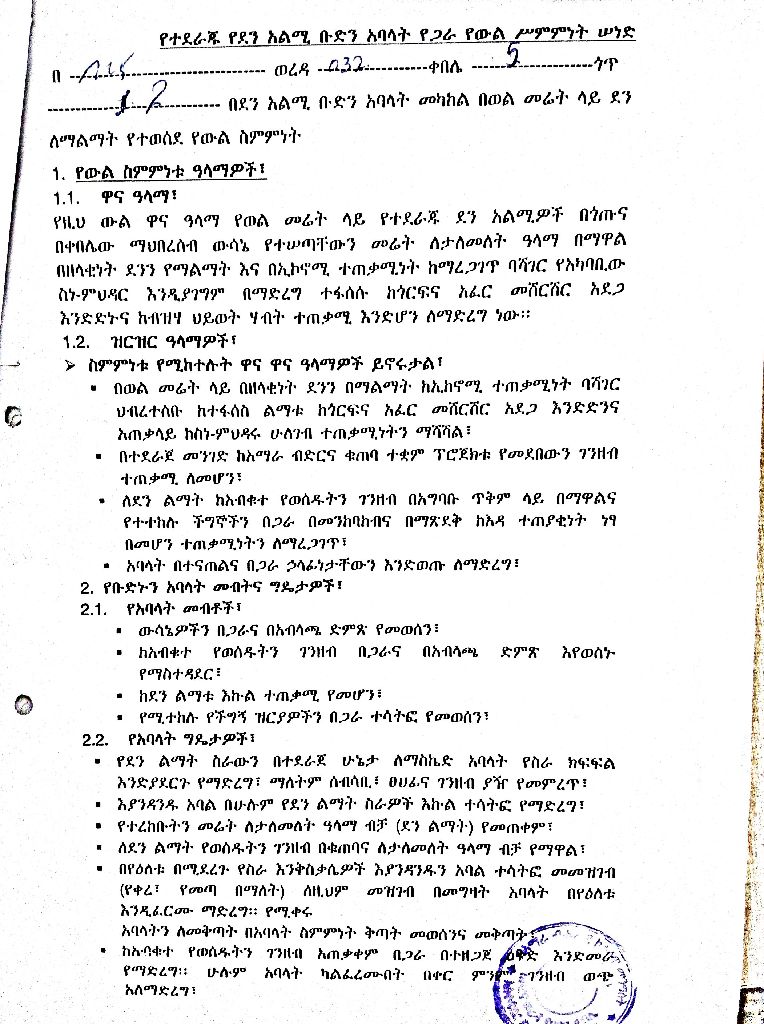 የተደራጁ የደን አልሚ ቡድን አባላት የጋራ የውል ሥምምነት ሠነድ
በ ---------- ወረዳ 032 ---------- ቀበሌ ---------- 5 ---------- ጎጥ
---------- 12 ---------- በደን አልሚ ቡድን አባላት መካከል በወል መሬት ላይ ደን
ለማልማት የተወሰደ የውል ስምምነት
1. የውል ስምምነቱ ዓላማዎች፣
1.1. ዋና ዓላማ፣
የዚህ ውል ዋና ዓላማ የወል መሬት ላይ የተደራጁ ደን አልሚዎች በጎጡና
በቀበሌው ማህበረሰብ ውሳኔ የተሠጣቸውን መሬት ለታለመለት ዓላማ በማዋል
በዘላቂነት ደንን የማልማት እና በኢኮኖሚ ተጠቃሚነት ከማረጋገጥ ባሻገር የአካባቢው
ስነ-ምህዳር እንዲያገግም በማድረግ ተፋሰሱ ከጎርፍና አፈር መሸርሸር አደጋ
እንድድኑና ከብዝሃ ህይወት ሃብት ተጠቃሚ እንድሆን ለማድረግ ነው።
1.2. ዝርዝር ዓላማዎች፣
➢ ስምምነቱ የሚከተሉት ዋና ዋና ዓላማዎች ይኖሩታል፣
▪ በወል መሬት ላይ በዘላቂነት ደንን በማልማት ከኢኮኖሚ ተጠቃሚነት ባሻገር
ህብረተሰቡ ከተፋሰስ ልማቱ ከጎርፍና አፈር መሸርሸር አደጋ እንድድንና
አጠቃላይ ከስነ-ምህዳሩ ሁለገብ ተጠቃሚነትን ማሻሻል፣
▪ በተደራጀ መንገድ ከአማራ ብድርና ቁጠባ ተቋም ፕሮጀክቱ የመደበውን ገንዘብ
ተጠቃሚ ለመሆን፣
▪ ለደን ልማት ከአብቁተ የወሰዱትን ገንዘብ በአግባቡ ጥቅም ላይ በማዋልና
የተተከሉ ችግኞችን በጋራ በመንከባከብና በማጽደቅ ከእዳ ተጠያቂነት ነፃ
በመሆን ተጠቃሚነትን ለማረጋገጥ፣
▪ አባላት በተናጠልና በጋራ ኃላፊነታቸውን እንድወጡ ለማድረግ፣
2. የቡድኑን አባላት መብትና ግዴታዎች፣
2.1. የአባላት መብቶች፣
▪ ውሳኔዎችን በጋራና በአብላጫ ድምጽ የመወሰን፣
▪ ከአብቁተ የወሰዱትን ገንዘብ በጋራና በአብላጫ ድምጽ እየወሰኑ
የማስተዳደር፣
▪ ከደን ልማቱ እኩል ተጠቃሚ የመሆን፣
▪ የሚተከሉ የችግኝ ዝርያዎችን በጋራ ተሳትፎ የመወሰን፣
2.2. የአባላት ግዴታዎች፣
▪ የደን ልማት ስራውን በተደራጀ ሁኔታ ለማስኬድ አባላት የስራ ክፍፍል
እንድያደርጉ የማድረግ፣ ማለትም ሰብሳቢ፣ ፀሀፊና ገንዘብ ያዥ የመምረጥ፣
▪ እያንዳንዱ አባል በሁሉም የደን ልማት ስራዎች እኩል ተሳትፎ የማድረግ፣
▪ የተረከቡትን መሬት ለታለመለት ዓላማ ብቻ (ደን ልማት) የመጠቀም፣
▪ ለደን ልማት የወሰዱትን ገንዘብ በቁጠባና ለታለመለት ዓላማ ብቻ የማዋል፣
▪ በየዕለቱ በሚደረጉ የስራ እንቅስቃሴዎች እያንዳንዱን አባል ተሳትፎ መመዝገብ
(የቀረ፣ የመጣ በማለት) ለዚህም መዝገብ በመግዛት አባላት በየዕለቱ
እንዲፈርሙ ማድረግ። የሚቀሩ
አባላትን ለመቅጣት በአባላት ስምምነት ቅጣት መወሰንና መቅጣት፣
▪ ከአብቁተ የወሰዱትን ገንዘብ አጠቃቀም በጋራ በተዘጋጀ ዕቅድ እንድመራ
የማድረግ። ሁሉም አባላት ካልፈረሙበት በቀር ምንም ገንዘብ ወጭ
አለማድረግ፣